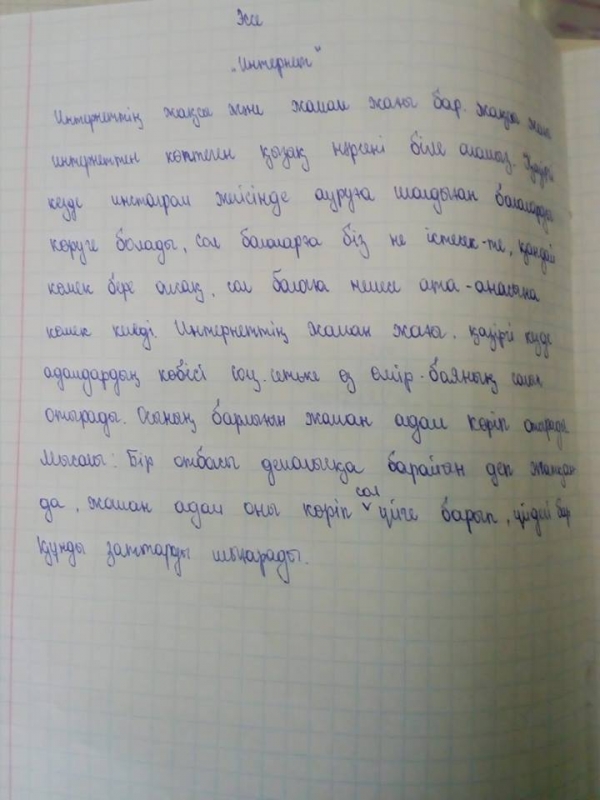 Эссе
"Интернет"
Интернеттің жақсы және жаман жағы бар. жақсы жағы
интернеттен көптеген қызық нәрсені біле аламыз. Қазіргі
кезде инстаграм желісінде ауруға шалдыған балаларды
көруге болады, сол балаларға біз не істесек-те, қандай
көмек бере алсақ, сол балаға немесе ата-анасына
көмек келеді. Интернеттің жаман жағы, қазіргі күде
адамдардың көбісі соц. сетьке өз өмір-баяның салып
отырады. Осының барлығын жаман адам көріп отырады
Мысалы: Бір отбасы демалысқа барайған деп жазған
да, жаман адам оны көріп сол үйге барып, үйдегі бар
құнды заттарды шығарады.